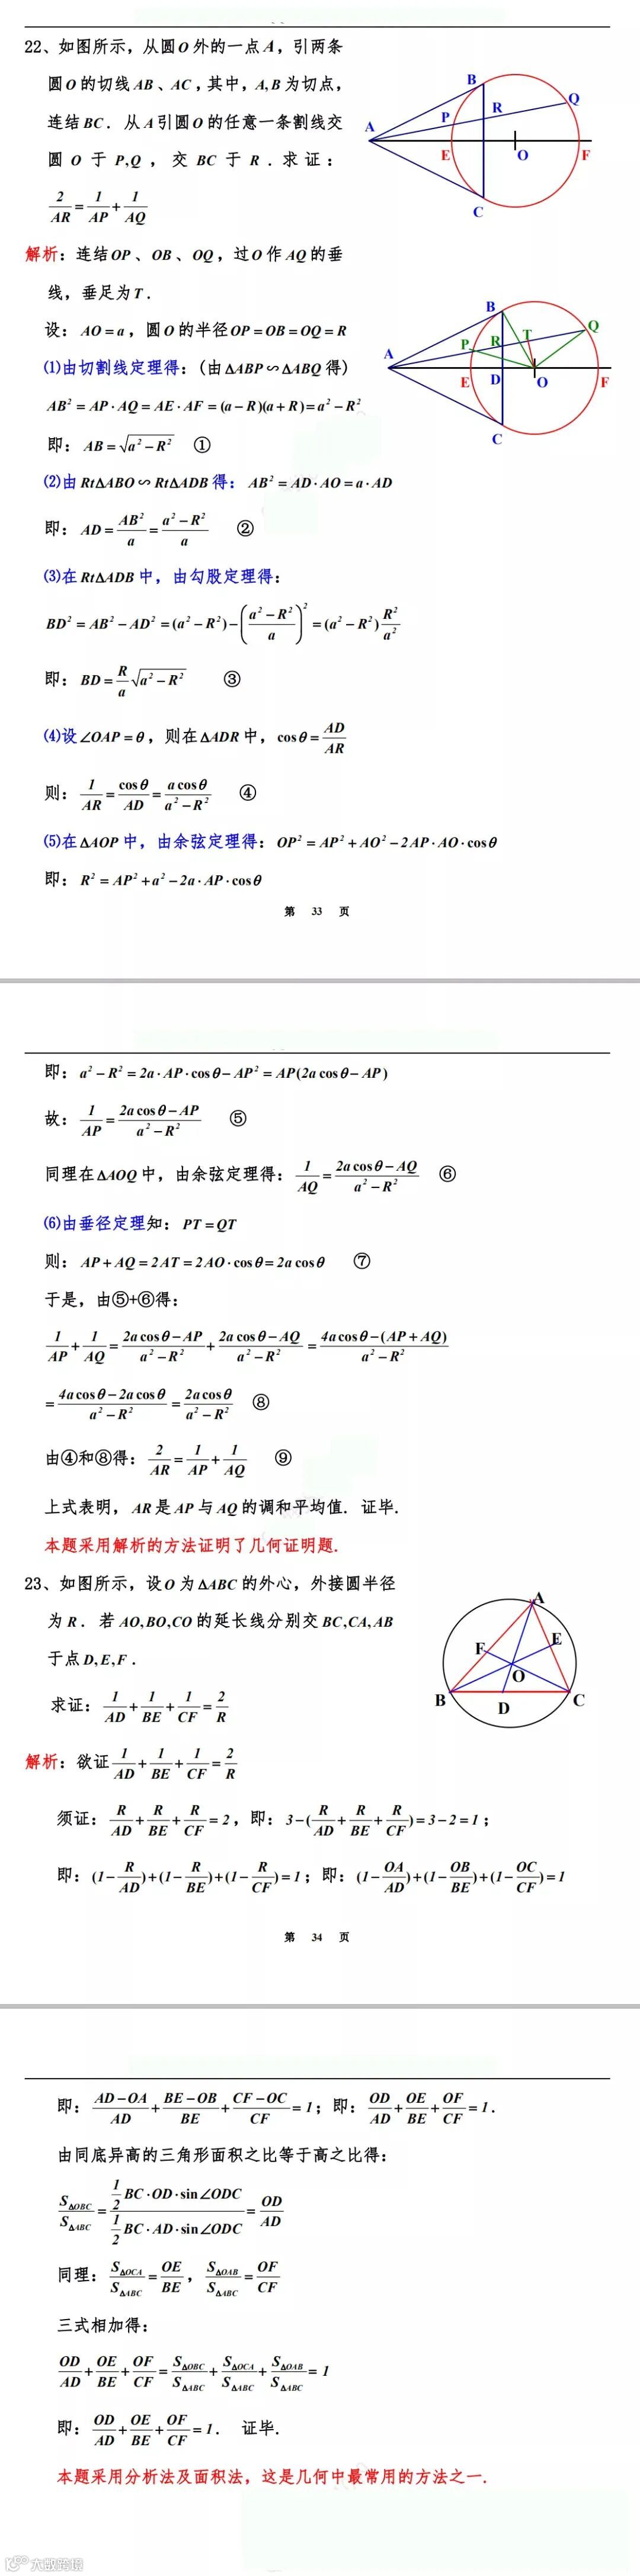 22、如图所示，从圆O外的一点A，引两条
圆O的切线AB、AC，其中，A,B为切点，
连结BC．从A引圆O的任意一条割线交
圆O于P,Q，交BC于R．求证：
2/AR=1/AP+1/AQ
A B P R Q E O F C
解析：连结OP、OB、OQ，过O作AQ的垂
线，垂足为T．
设：AO=a，圆O的半径OP=OB=OQ=R
A B P R T Q E D O F C
⑴由切割线定理得：(由ΔABP∽ΔABQ得)
AB²=AP·AQ=AE·AF=(a−R)(a+R)=a²−R²
即：AB=√(a²−R²) ①
⑵由RtΔABO∽RtΔADB得：AB²=AD·AO=a·AD
即：AD=AB²/a=(a²−R²)/a ②
⑶在RtΔADB中，由勾股定理得：
BD²=AB²−AD²=(a²−R²)−((a²−R²)/a)²=(a²−R²)R²/a²
即：BD=R/a√(a²−R²) ③
⑷设∠OAP=θ，则在ΔADR中，cosθ=AD/AR
则：1/AR=cosθ/AD=acosθ/(a²−R²) ④
⑸在ΔAOP中，由余弦定理得：OP²=AP²+AO²−2AP·AO·cosθ
即：R²=AP²+a²−2a·AP·cosθ
第 33 页
即：a²−R²=2a·AP·cosθ−AP²=AP(2acosθ−AP)
故：1/AP=(2acosθ−AP)/(a²−R²) ⑤
同理在ΔAOQ中，由余弦定理得：1/AQ=(2acosθ−AQ)/(a²−R²) ⑥
⑹由垂径定理知：PT=QT
则：AP+AQ=2AT=2AO·cosθ=2acosθ ⑦
于是，由⑤+⑥得：
1/AP+1/AQ=(2acosθ−AP)/(a²−R²)+(2acosθ−AQ)/(a²−R²)=(4acosθ−(AP+AQ))/(a²−R²)
=(4acosθ−2acosθ)/(a²−R²)=2acosθ/(a²−R²) ⑧
由④和⑧得：2/AR=1/AP+1/AQ ⑨
上式表明，AR是AP与AQ的调和平均值．证毕．
本题采用解析的方法证明了几何证明题．
23、如图所示，设O为ΔABC的外心，外接圆半径
为R．若AO,BO,CO的延长线分别交BC,CA,AB
于点D,E,F．
求证：1/AD+1/BE+1/CF=2/R
A F E O B D C
解析：欲证1/AD+1/BE+1/CF=2/R
须证：R/AD+R/BE+R/CF=2，即：3−(R/AD+R/BE+R/CF)=3−2=1；
即：(1−R/AD)+(1−R/BE)+(1−R/CF)=1；即：(1−OA/AD)+(1−OB/BE)+(1−OC/CF)=1
第 34 页
即：(AD−OA)/AD+(BE−OB)/BE+(CF−OC)/CF=1；即：OD/AD+OE/BE+OF/CF=1．
由同底异高的三角形面积之比等于高之比得：
SΔOBC/SΔABC=(1/2 BC·OD·sin∠ODC)/(1/2 BC·AD·sin∠ODC)=OD/AD
同理：SΔOCA/SΔABC=OE/BE，SΔOAB/SΔABC=OF/CF
三式相加得：
OD/AD+OE/BE+OF/CF=SΔOBC/SΔABC+SΔOCA/SΔABC+SΔOAB/SΔABC=1
即：OD/AD+OE/BE+OF/CF=1． 证毕．
本题采用分析法及面积法，这是几何中最常用的方法之一．
大数跨境